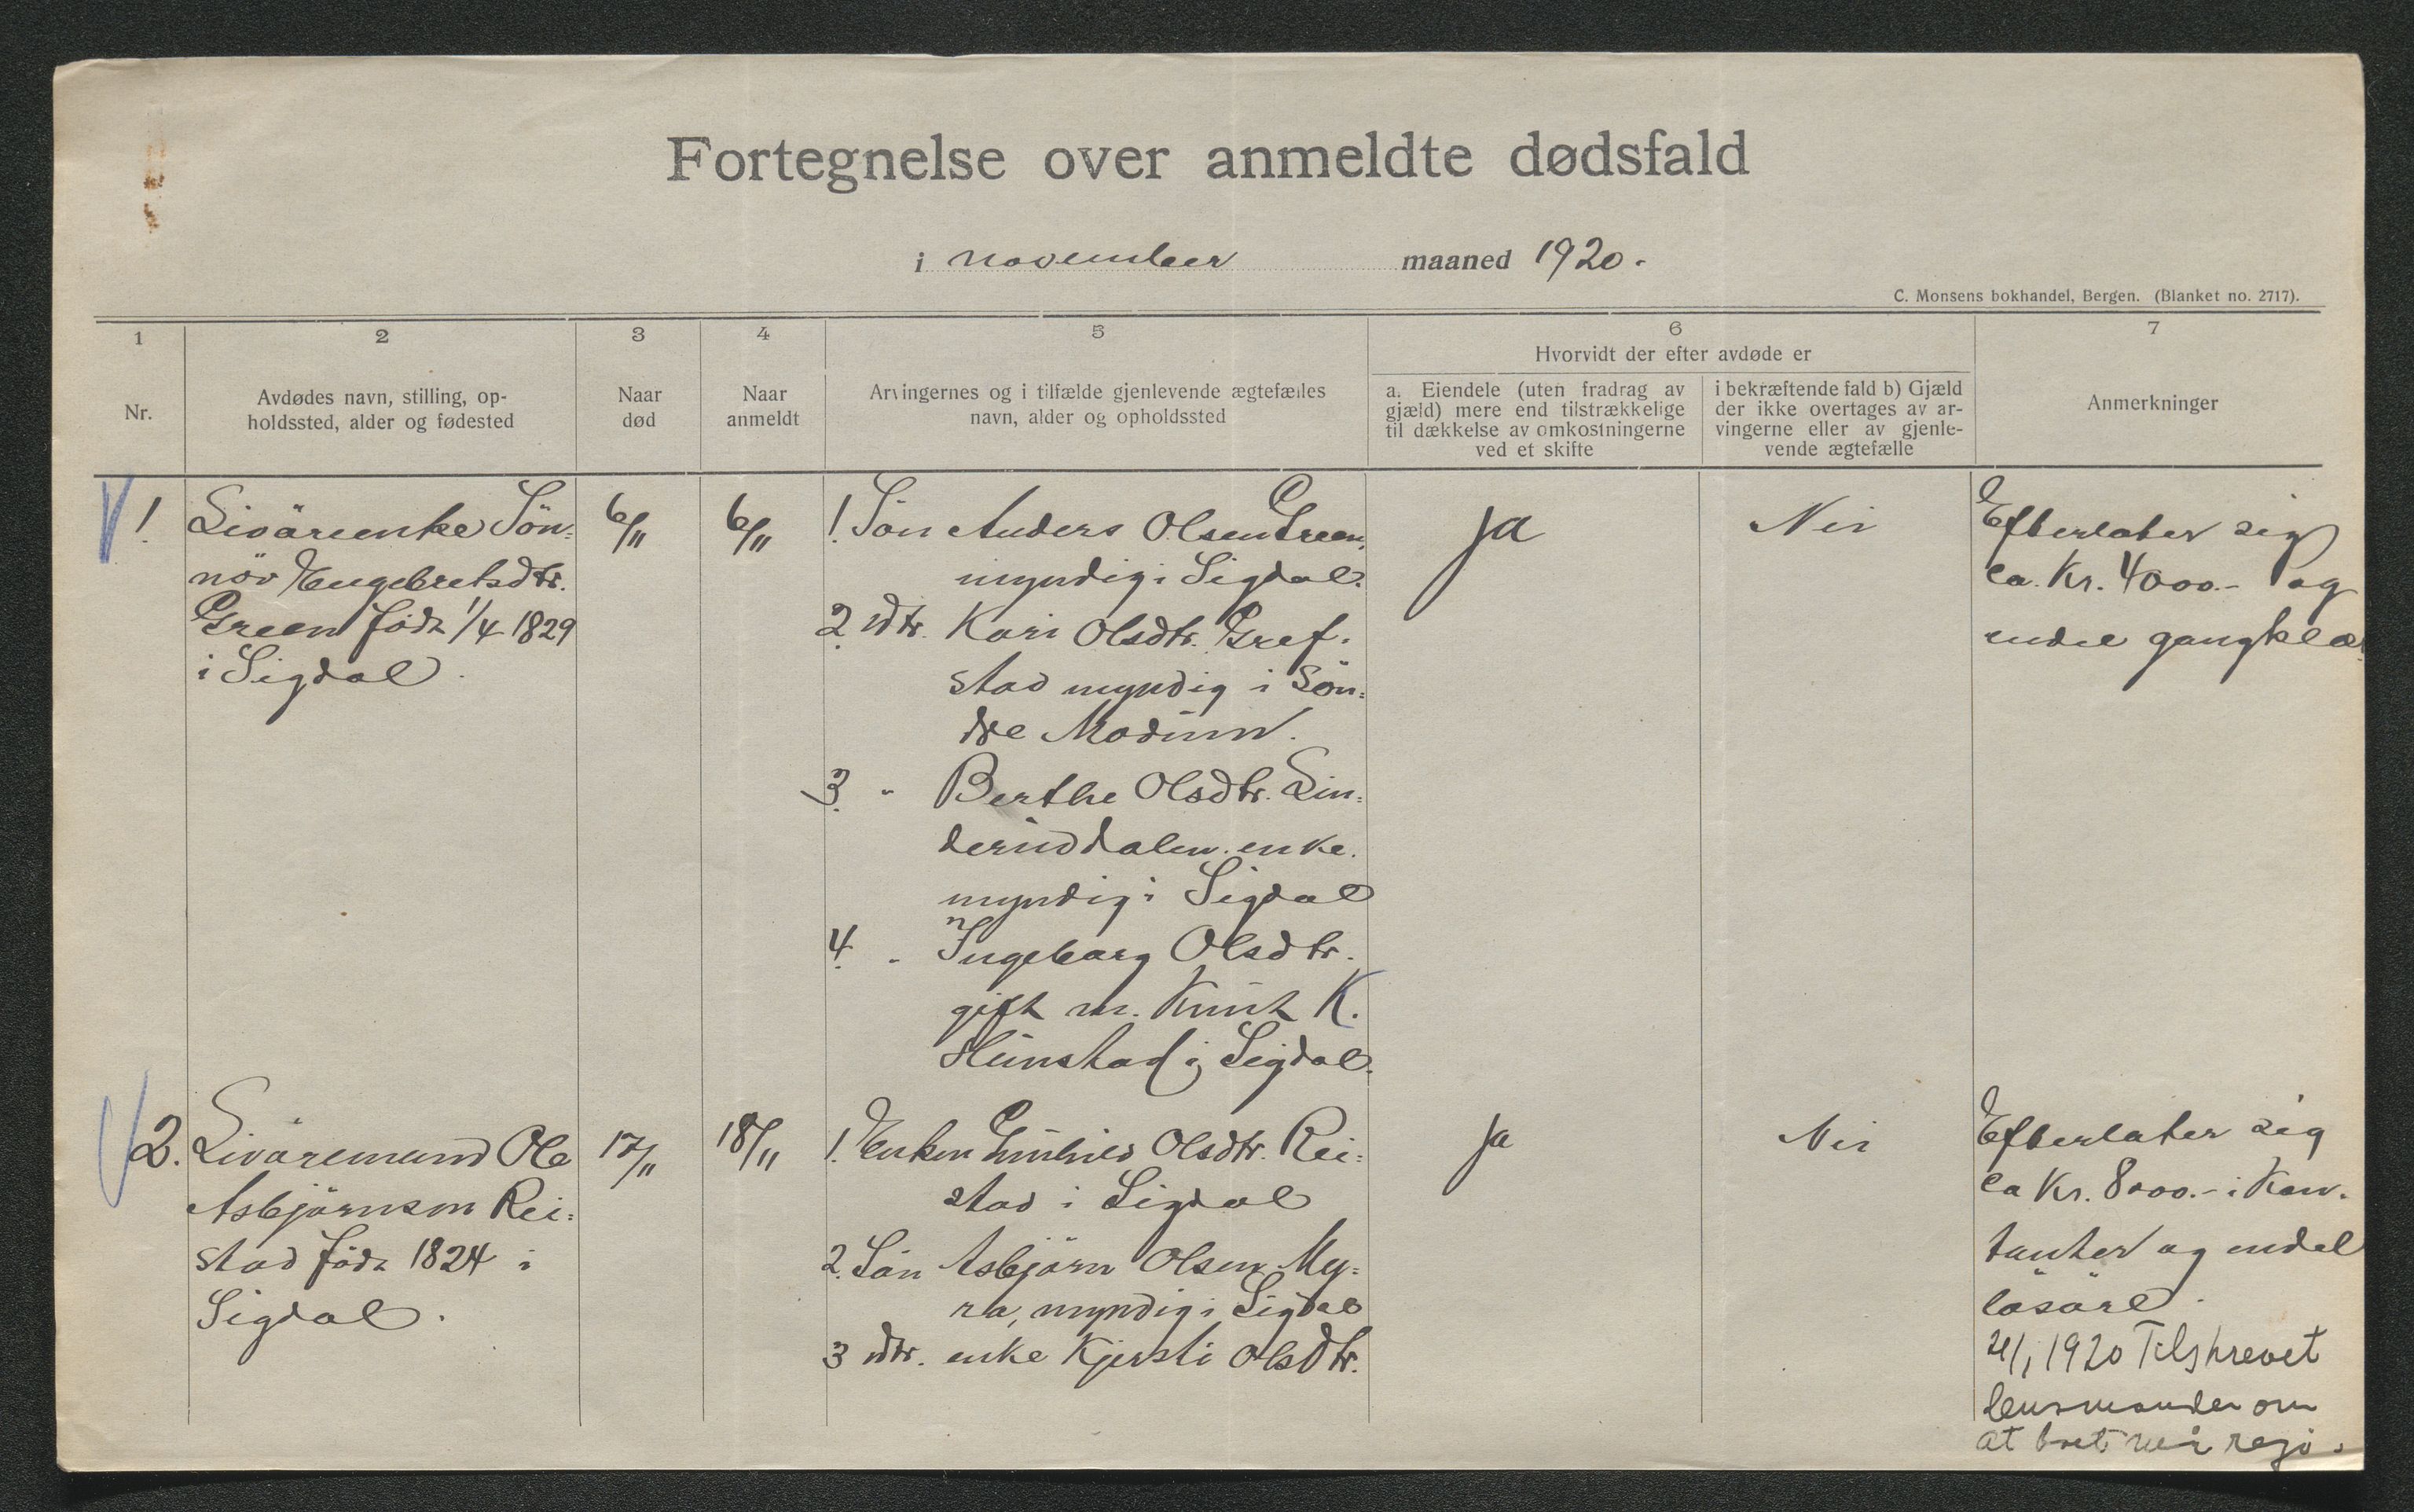 Fortegnelse over anmeldte dødsfald
i november maaned 1920.
C. Monsens bokhandel, Bergen. (Blanket no. 2717).
1
Nr.
2
Avdødes navn, stilling, op-
holdssted, alder og fødested
3
Naar
død
4
Naar
anmeldt
5
Arvingernes og i tilfælde gjenlevende ægtefælles
navn, alder og opholdssted
6
Hvorvidt der efter avdøde er
a. Eiendele (uten fradrag av
gjæld) mere end tilstrækkelige
til dækkelse av omkostningerne
ved et skifte
i bekræftende fald b) Gjæld
der ikke overtages av ar-
vingerne eller av gjenle-
vende ægtefælle
7
Anmerkninger
1.
Livörenke Sön-
növ Engebretsdtr.
Green född 1/4 1829
i Sigdal.
6/11
6/11
1. Sön Anders Olsen Green,
myndig i Sigdal.
2. dtr. Kari Olsdtr. Gref-
stad myndig i Sön-
dre Modum.
3. " Berthe Olsdtr. Lin-
deruddalen. enke.
myndig i Sigdal
4. " Ingeborg Olsdtr.
gift m. Knut K.
Hunstad i Sigdal.
Ja
Nei
Efterlater sig
ca. Kr. 4000.- og
endel gangklæ.
2.
Livöremand Ole
Asbjörnsen Rei-
stad född 1824 i
Sigdal.
17/11
18/11
1. Enken Gunhild Olsdtr. Rei-
stad i Sigdal
2. Sön Asbjörn Olsen My-
ra, myndig i Sigdal
3 dtr. enke Kjersti Olsdtr.
Ja
Nei
Efterlater sig
ca Kr. 8000.- i Kon-
tanter og endel
lösöre.
1920 Tilskrevet
lensmanden om
at